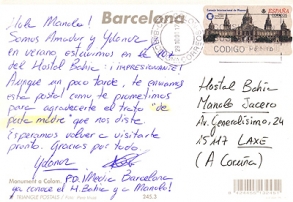 ¡Hola Manolo!
Barcelona
Somos Amador y Yolanda
en verano estuvimos en el
Hostal Bahía, ¡IMPRESIONANTE!
Aunque un poco tarde, te enviamos
esta postal como te prometimos
para agradecerte el trato "de
puta madre" que nos diste.
Esperamos volver a visitarte
pronto. Gracias por todo
P.D: ¡Media Barcelona
ya conoce el H. Bahía y a Manolo!
Monument a Colom.
TRIANGLE POSTALS
345.3
ESPAÑA
CODIGO
Hostal Bahía
Manolo Jacero
Av. Generalísimo, 24
15117 LAXE
(A Coruña)